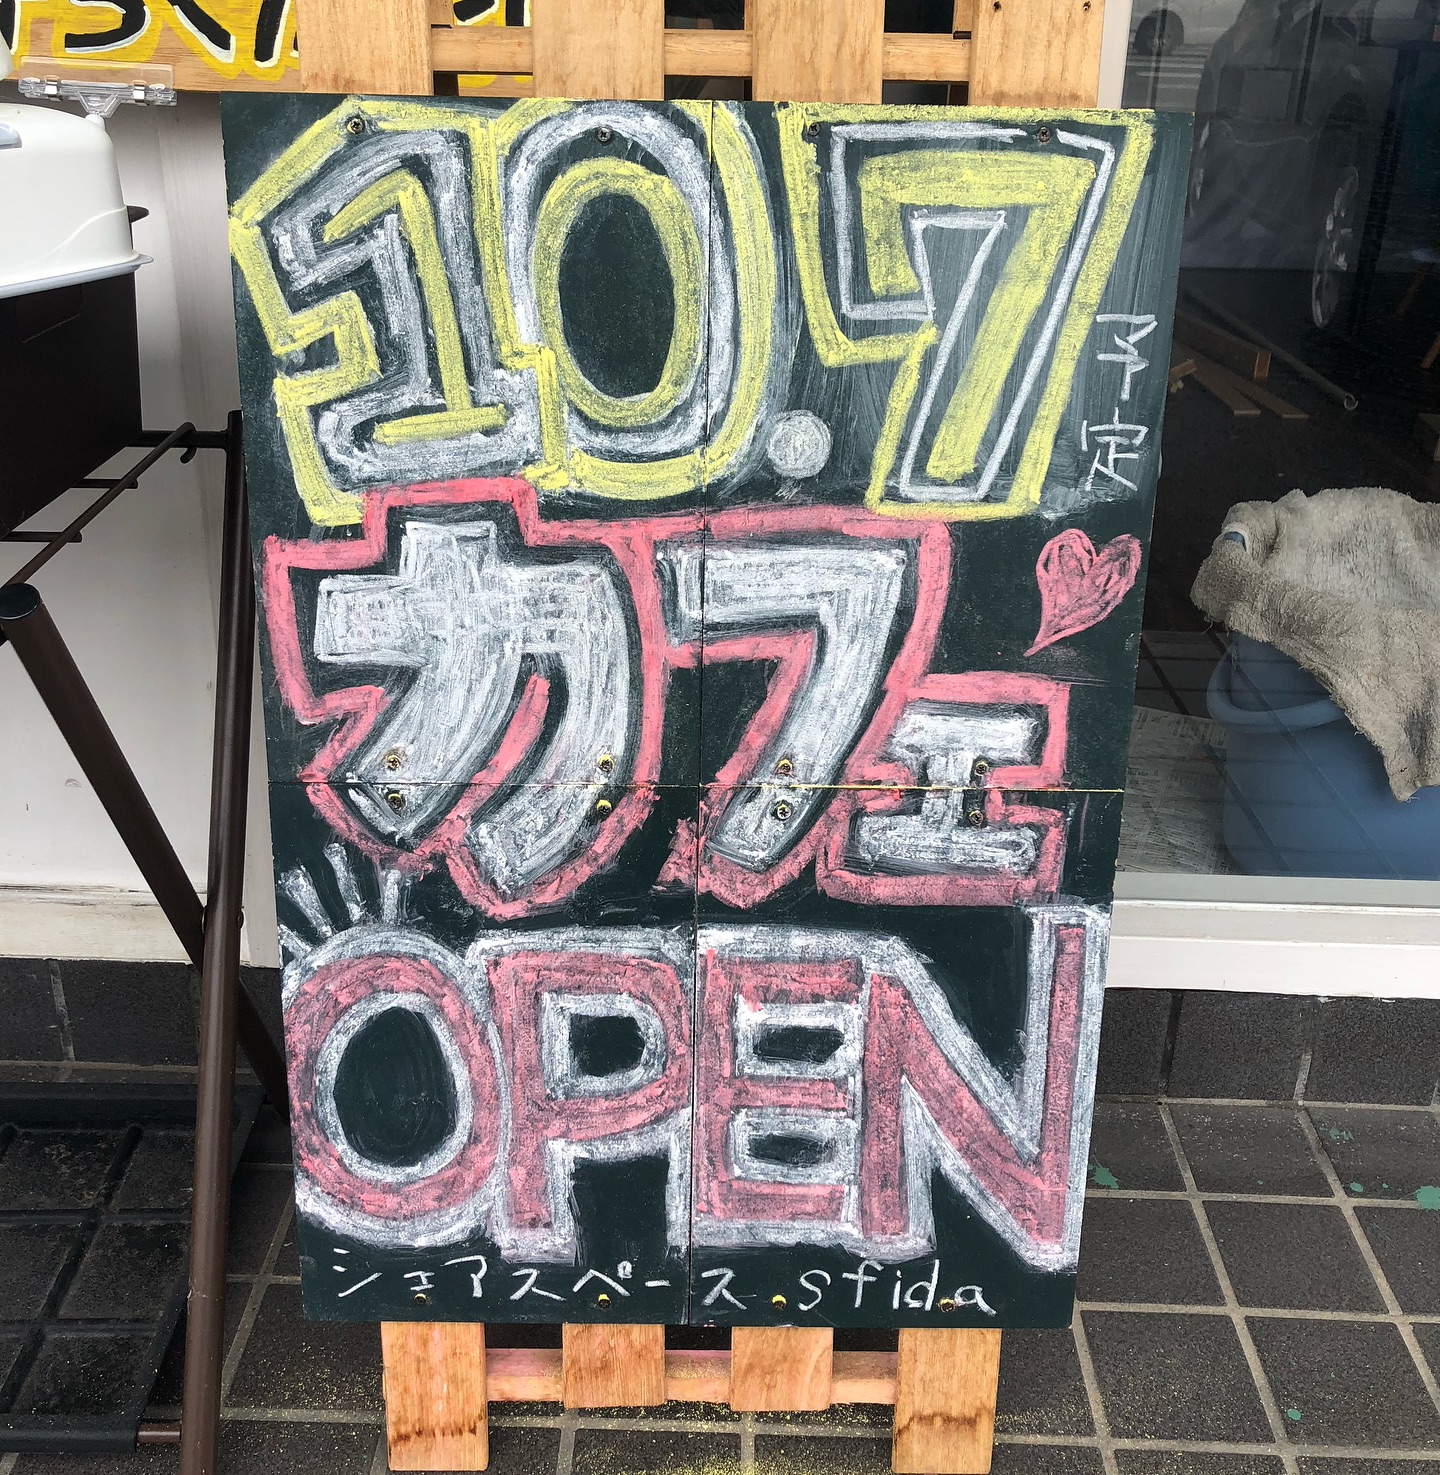 10.7
予定
カフェ
OPEN
シェアスペース sfida